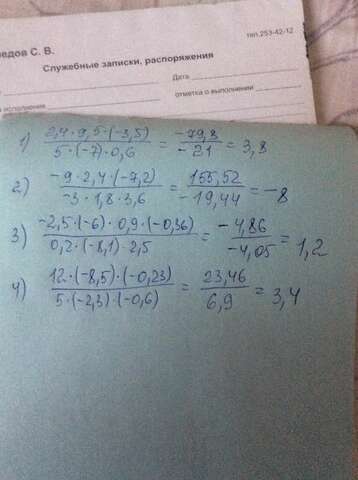 тел.253-42-12
ведов С. В.
Служебные записки, распоряжения
Дата
отметка о выполнении
исполнения
1) 2,4 · 9,5 · (-3,5) / 5 · (-7) · 0,6 = -79,8 / -21 = 3,8
2) -9 · 2,4 · (-7,2) / -3 · 1,8 · 3,6 = 155,52 / -19,44 = -8
3) -2,5 · (-6) · 0,9 · (-0,36) / 0,2 · (-8,1) · 2,5 = -4,86 / -4,05 = 1,2
4) 12 · (-8,5) · (-0,23) / 5 · (-2,3) · (-0,6) = 23,46 / 6,9 = 3,4